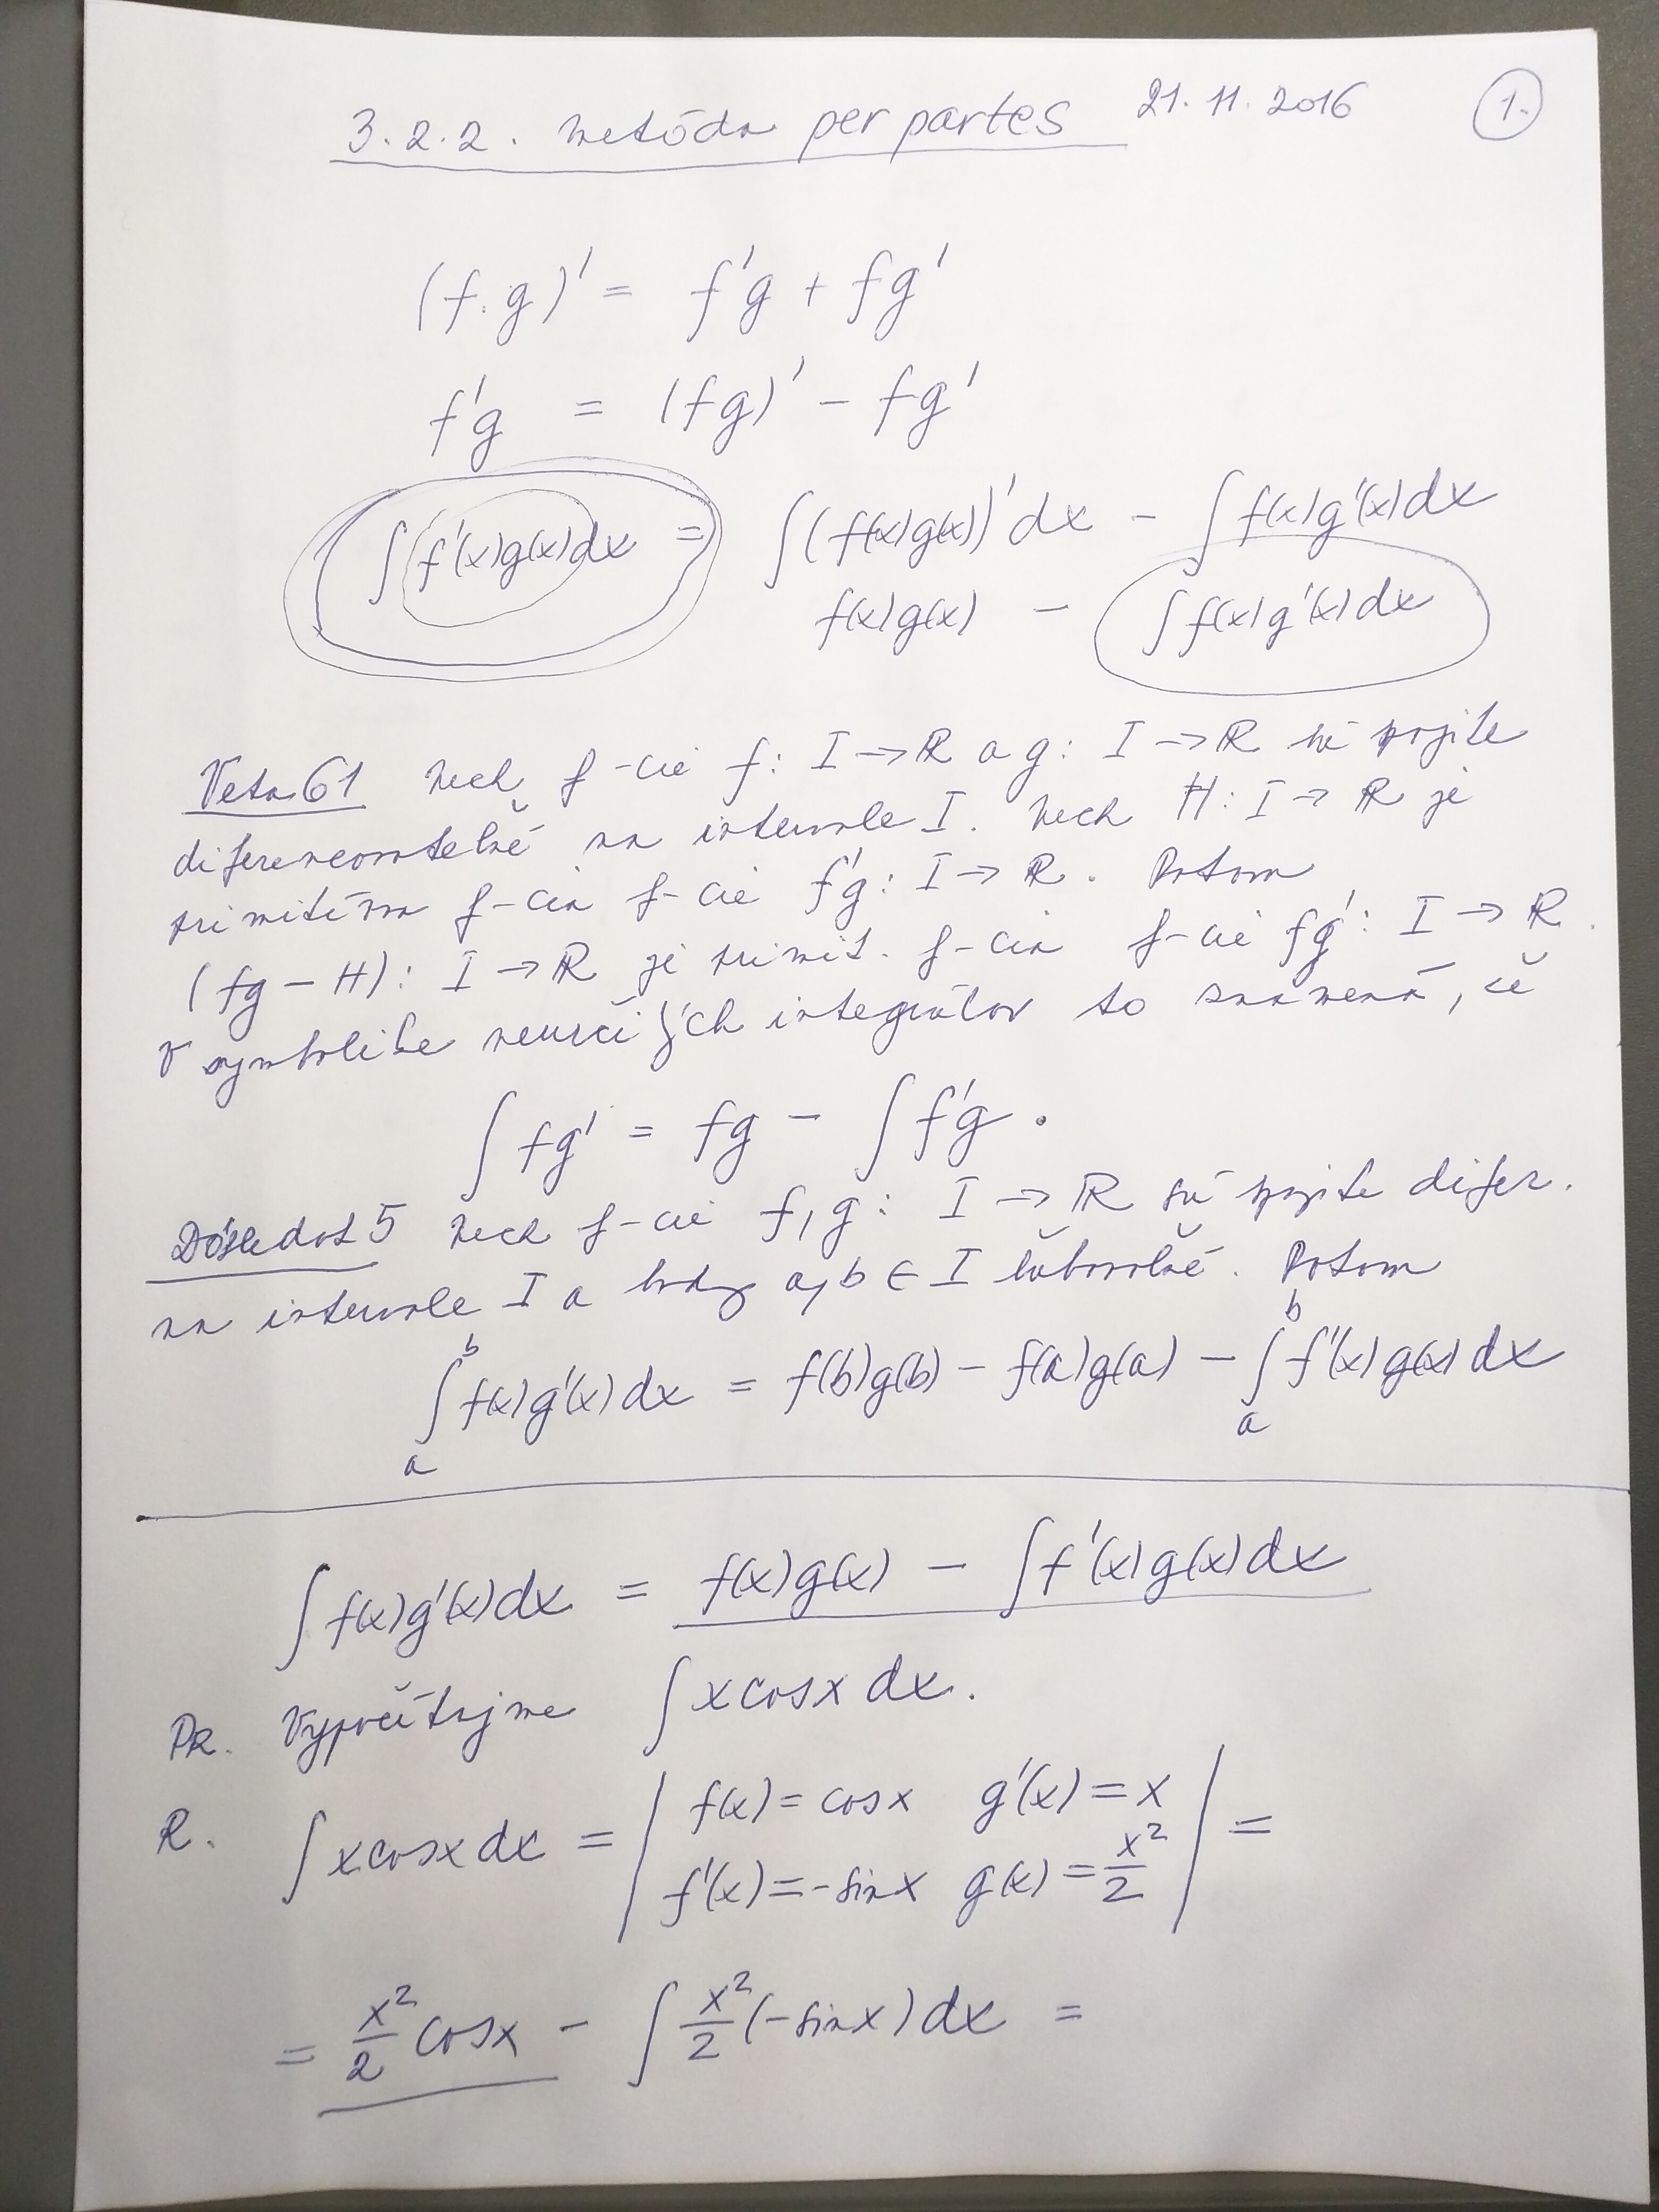 3.2.2. metóda per partes 21.11.2016 1.
(f.g)' = f'g + fg'
f'g = (fg)' - fg'
∫f'(x)g(x)dx = ∫(f(x)g(x))'dx - ∫f(x)g'(x)dx
f(x)g(x) - ∫f(x)g'(x)dx
Veta 61 Nech f-cie f: I → R a g: I → R sú spojite
diferencovateľné na intervale I. Nech H: I → R je
primitívna f-cia f-cie f'g: I → R. Potom
(fg - H): I → R je primit. f-cia f-cie fg': I → R.
V symbolike neurčitých integrálov to znamená, že
∫fg' = fg - ∫f'g.
Dôsledok 5 Nech f-cie f, g: I → R sú spojite difer.
na intervale I a body a, b ∈ I ľubovoľné. Potom
∫_a^b f(x)g'(x)dx = f(b)g(b) - f(a)g(a) - ∫_a^b f'(x)g(x)dx
∫f(x)g'(x)dx = f(x)g(x) - ∫f'(x)g(x)dx
PR. Vypočítajme ∫x cosx dx.
R. ∫x cosx dx = | f(x) = cosx g'(x) = x
f'(x) = -sinx g(x) = x²/2 | =
= x²/2 cosx - ∫x²/2 (-sinx)dx =